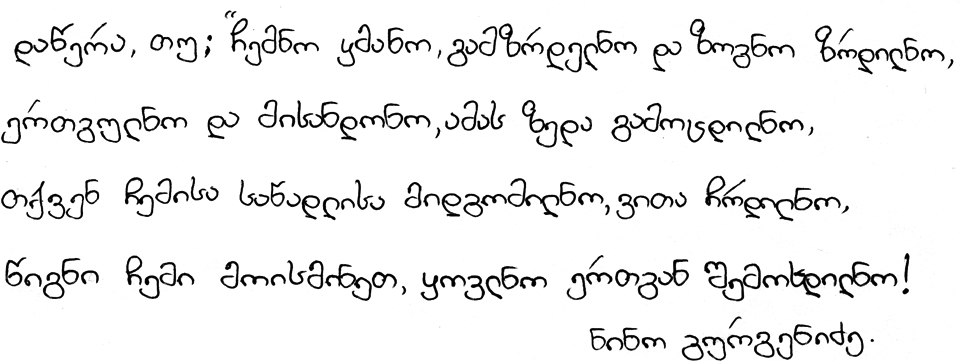 დაწერა, თუ; "ჩემნო ყმანო, გამზრდელნო და ზოგნო ზრდილნო,
ერთგულნო და მისანდონო, ამას ზედა გამოცდილნო,
თქვენ ჩემისა სანადლისა მიდგომილნო, ვითა ჩრდილნო,
წიგნი ჩემი მოისმინეთ, ყოვლნო ერთგან შემოხდილნო!
ნინო გურგენიძე.